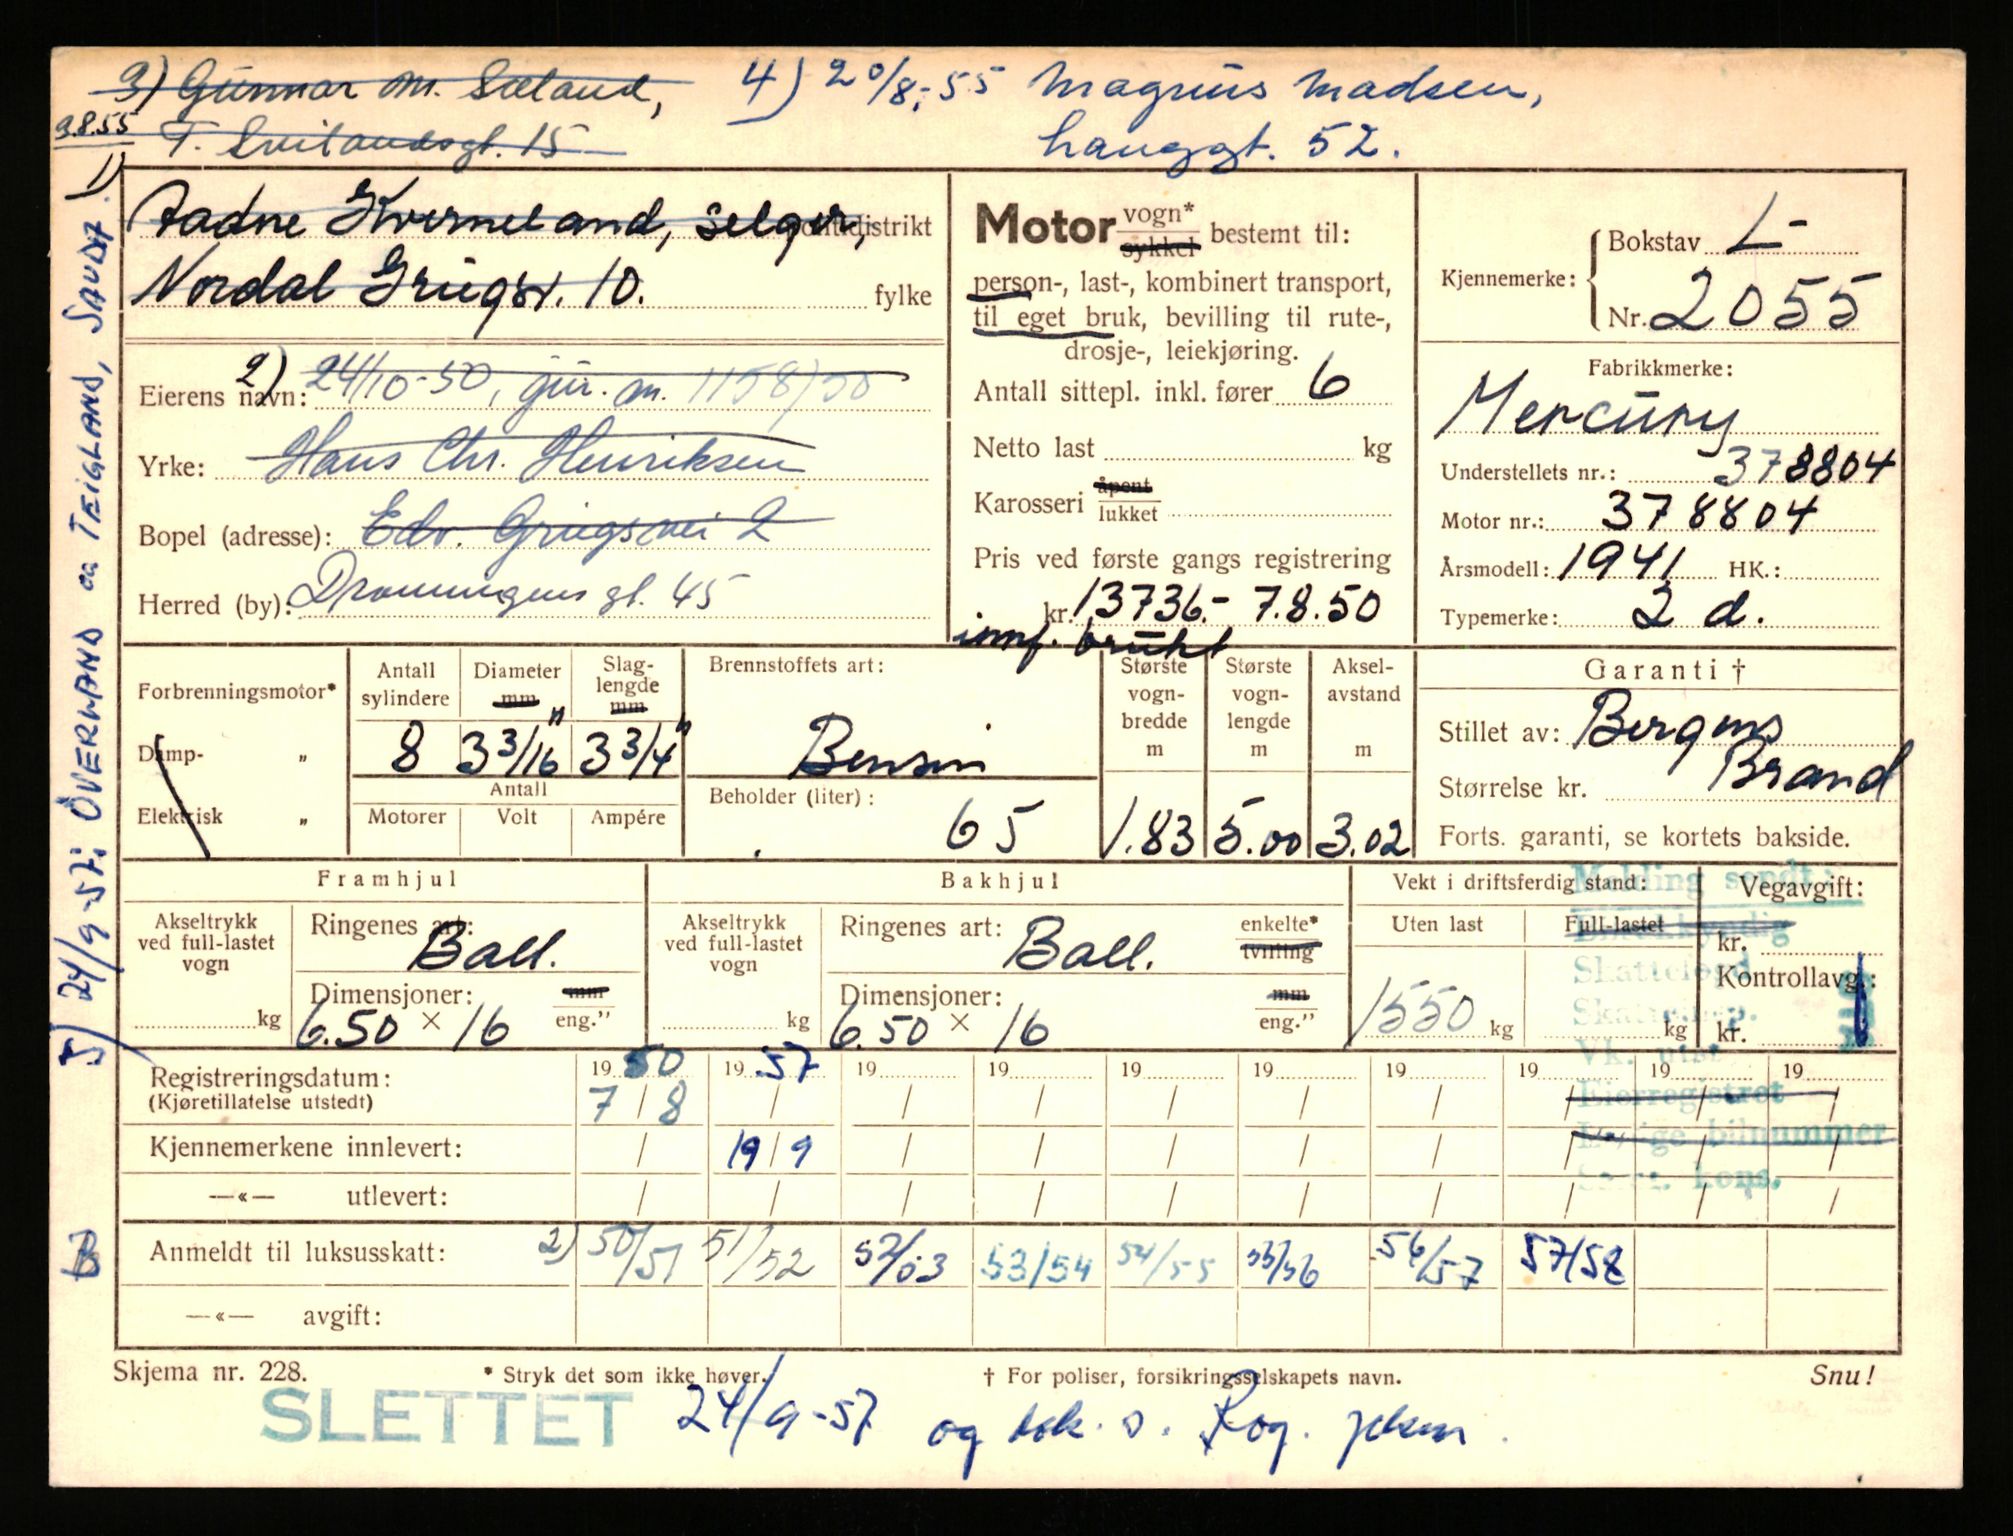 3) Gunnar M. Sæland,
9.8.55 T. Svilandsgt. 15
4) 20/8-55 Magnus Madsen,
Hauggt. 52.
1) Aadne Kverneland, selger, politidistrikt
Nordal Griegsv. 10. fylke
Eierens navn: 2) 24/10-50, jur. m. 1158/50
Yrke: Hans Chr. Henriksen
Bopel (adresse): Edv. Griegsvei 2
Herred (by): Dronningensgt. 45
Motor vogn*
sykkel bestemt til:
person-, last-, kombinert transport,
til eget bruk, bevilling til rute-,
drosje-, leiekjøring.
Antall sittepl. inkl. fører 6
Netto last kg
Karosseri åpent
lukket
Pris ved første gangs registrering
kr. 13736.- 7.8.50
innf. brukt
Kjennemerke: Bokstav L-
Nr. 2055
Fabrikkmerke:
Mercury
Understellets nr.: 378804
Motor nr.: 378804
Årsmodell: 1941 HK.:
Typemerke: 2 d.
Forbrenningsmotor*
Damp- „
Elektrisk „
Antall sylindere
8
Diameter mm
3 3/16"
Slag-
lengde
mm
3 3/4"
Antall
Motorer Volt Ampére
Brennstoffets art:
Bensin
Beholder (liter):
65
Største
vogn-
bredde
m
1.83
Største
vogn-
lengde
m
5.00
Aksel-
avstand
m
3.02
Garanti †
Stillet av: Bergens
Størrelse kr. Brand
Forts. garanti, se kortets bakside.
Framhjul
Akseltrykk
ved full-lastet
vogn
kg
Ringenes art:
Ball.
Dimensjoner: mm
6.50 × 16 eng."
Bakhjul
Akseltrykk
ved full-lastet
vogn
kg
Ringenes art: enkelte*
Ball. tvilling
Dimensjoner: mm
6.50 × 16 eng."
Vekt i driftsferdig stand:
Uten last Full-lastet
1550 kg kg
Vegavgift:
kr.
Kontrollavg.:
kr.
Melding sendt:
Skattefogd
Vk. utst.
Eierregistret
bilnummer
kons.
Registreringsdatum: 1950 1957 19 19 19 19 19 19 19 19
(Kjøretillatelse utstedt) 7/8 / / / / / / / / /
Kjennemerkene innlevert: / 19/9 / / / / / / / /
—«— utlevert: / / / / / / / / / /
Anmeldt til luksusskatt: 2) 50/51 51/52 52/53 53/54 54/55 55/56 56/57 57/58
—«— avgift:
Skjema nr. 228. * Stryk det som ikke høver. † For poliser, forsikringsselskapets navn. Snu!
SLETTET 24/9-57 og
5) 24/9-57: ØVERLAND og TEIGLAND, SAUDA.
B